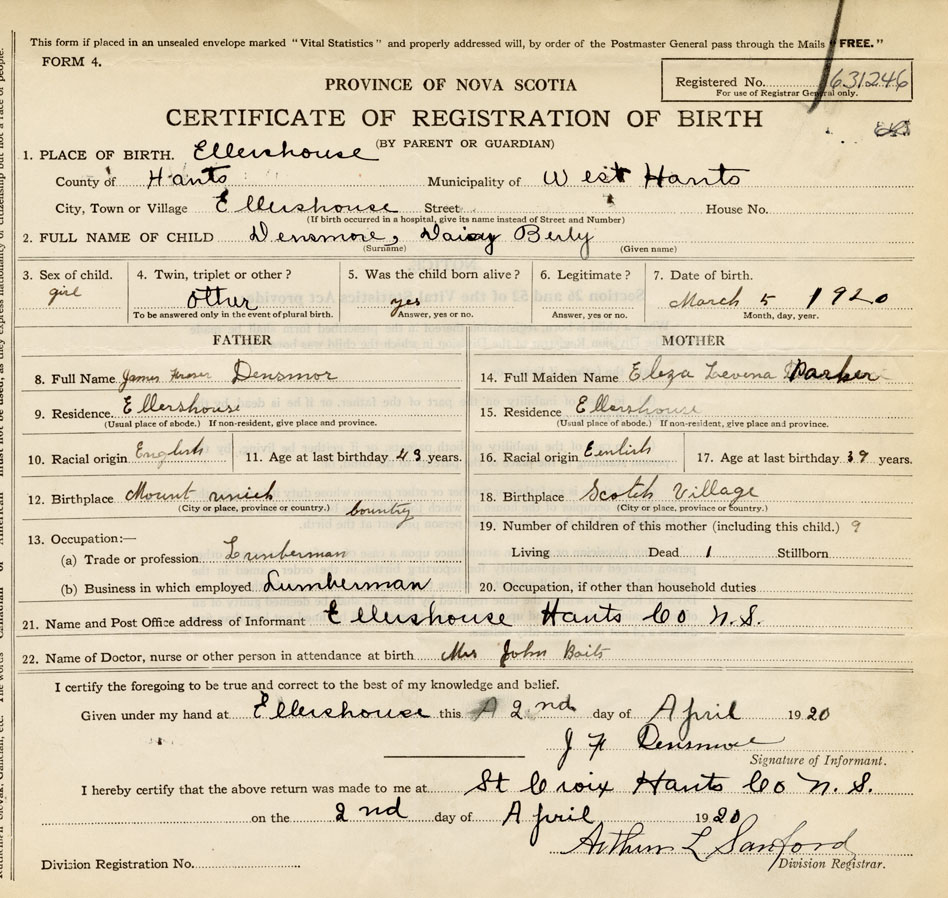 This form if placed in an unsealed envelope marked "Vital Statistics" and properly addressed will, by order of the Postmaster General pass through the Mails "FREE."
FORM 4.
Registered No. 631246
For use of Registrar General only.
PROVINCE OF NOVA SCOTIA
CERTIFICATE OF REGISTRATION OF BIRTH
(BY PARENT OR GUARDIAN)
1. PLACE OF BIRTH. Ellershouse
County of Hants Municipality of West Hants
City, Town or Village Ellershouse Street House No.
(If birth occurred in a hospital, give its name instead of Street and Number)
2. FULL NAME OF CHILD Densmore, Daisy Berly
(Surname) (Given name)
3. Sex of child. girl 4. Twin, triplet or other? other 5. Was the child born alive? yes 6. Legitimate? 7. Date of birth. March 5 1920
To be answered only in the event of plural birth. Answer, yes or no. Answer, yes or no. Month, day, year.
FATHER MOTHER
8. Full Name James Densmor 14. Full Maiden Name Eleza Levena Parker
9. Residence. Ellershouse 15. Residence Ellershouse
(Usual place of abode.) If non-resident, give place and province. (Usual place of abode.) If non-resident, give place and province.
10. Racial origin English 11. Age at last birthday 43 years. 16. Racial origin Eenlish 17. Age at last birthday 39 years.
12. Birthplace Mount unick 18. Birthplace Scotch Village
(City or place, province or country.) country (City or place, province or country.)
19. Number of children of this mother (including this child.) 9
13. Occupation:—
(a) Trade or profession Lumberman Living Dead 1 Stillborn
(b) Business in which employed Lumberman 20. Occupation, if other than household duties
21. Name and Post Office address of Informant Ellershouse Hants Co N.S.
22. Name of Doctor, nurse or other person in attendance at birth Mrs John Baits
I certify the foregoing to be true and correct to the best of my knowledge and belief.
Given under my hand at Ellershouse this 2nd day of April 1920
J F Densmore
Signature of Informant.
I hereby certify that the above return was made to me at St Croix Hants Co N.S.
on the 2nd day of April 1920
Arthur L Sanford
Division Registration No. Division Registrar.